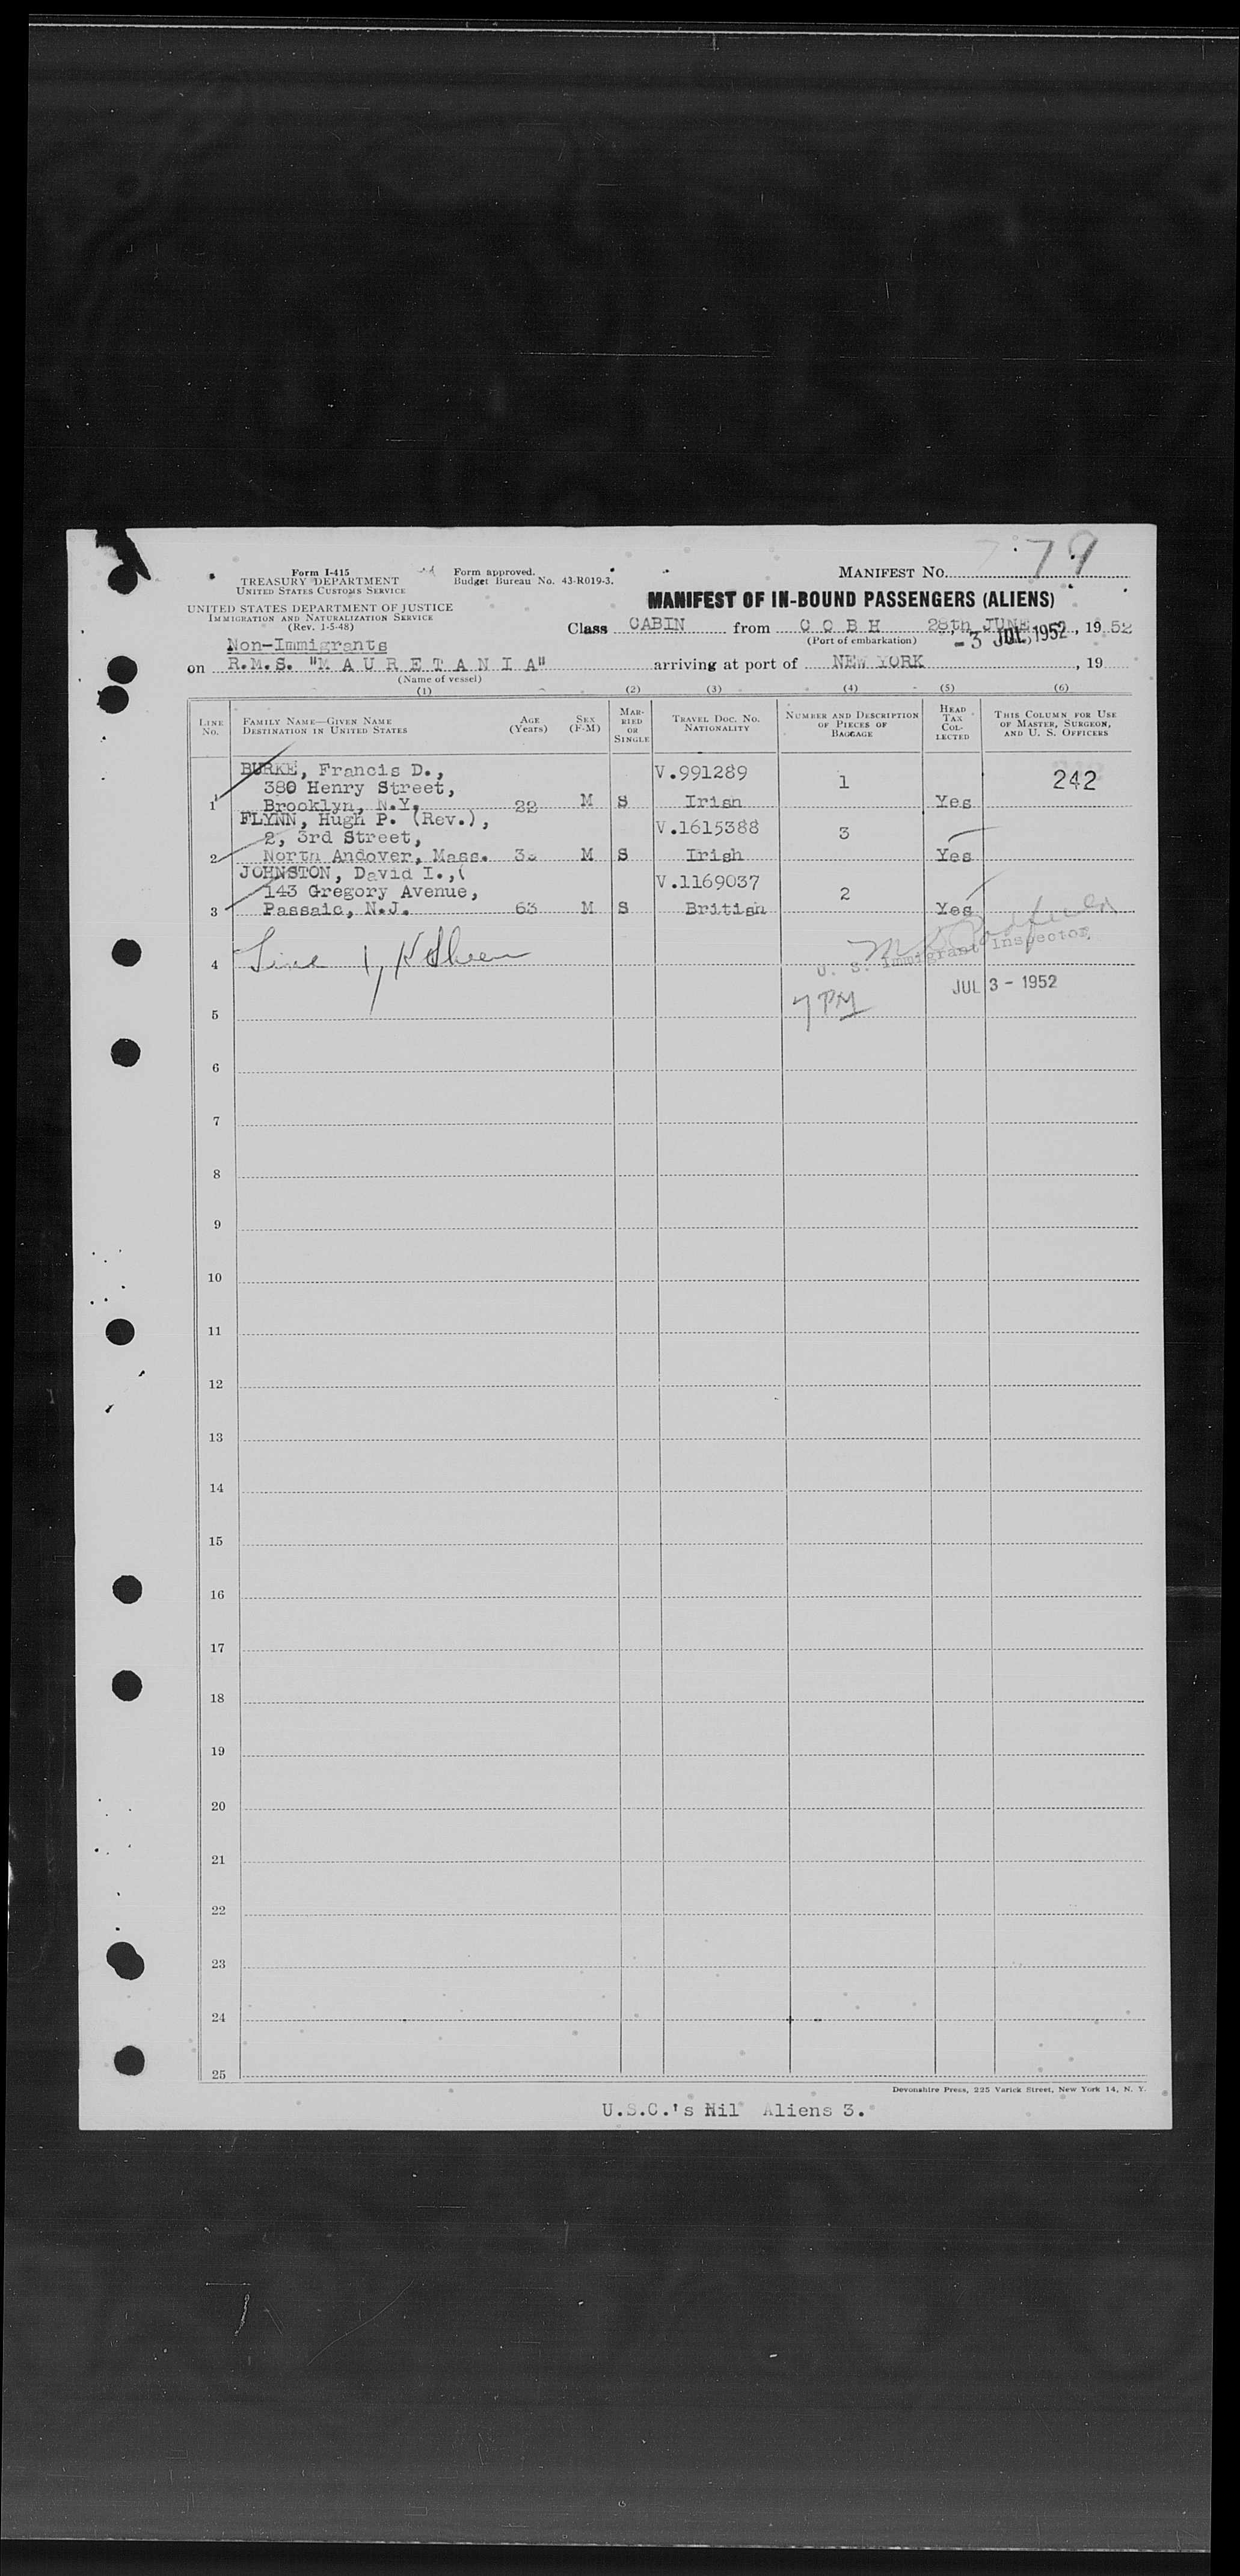 79
Form I-415
TREASURY DEPARTMENT
UNITED STATES CUSTOMS SERVICE
Form approved.
Budget Bureau No. 43-R019-3.
MANIFEST No.
UNITED STATES DEPARTMENT OF JUSTICE
IMMIGRATION AND NATURALIZATION SERVICE
(Rev. 1-5-48)
MANIFEST OF IN-BOUND PASSENGERS (ALIENS)
Class CABIN from C O B H 28th JUNE, 1952
(Port of embarkation)
-3 JUL 1952
Non-Immigrants
on R.M.S. "M A U R E T A N I A" arriving at port of NEW YORK, 19
(Name of vessel)
(1) (2) (3) (4) (5) (6)
LINE No. FAMILY NAME—GIVEN NAME DESTINATION IN UNITED STATES AGE (Years) SEX (F-M) MARRIED OR SINGLE TRAVEL DOC. NO. NATIONALITY NUMBER AND DESCRIPTION OF PIECES OF BAGGAGE HEAD TAX COLLECTED THIS COLUMN FOR USE OF MASTER, SURGEON, AND U. S. OFFICERS
BURKE, Francis D., V.991289
380 Henry Street, 1 242
1 Brooklyn, N.Y. 22 M S Irish Yes
FLYNN, Hugh P. (Rev.), V.1615388
2, 3rd Street, 3
2 North Andover, Mass. M S Irish Yes
JOHNSTON, David I.,( V.1169037
143 Gregory Avenue, 2
3 Passaic, N.J. 63 M S British Yes
Line 1,
U. S. Immigrant Inspector
4
JUL 3 - 1952
7 PM
5
6
7
8
9
10
11
12
13
14
15
16
17
18
19
20
21
22
23
24
25
Devonshire Press, 225 Varick Street, New York 14, N. Y.
U.S.C.'s Nil Aliens 3.